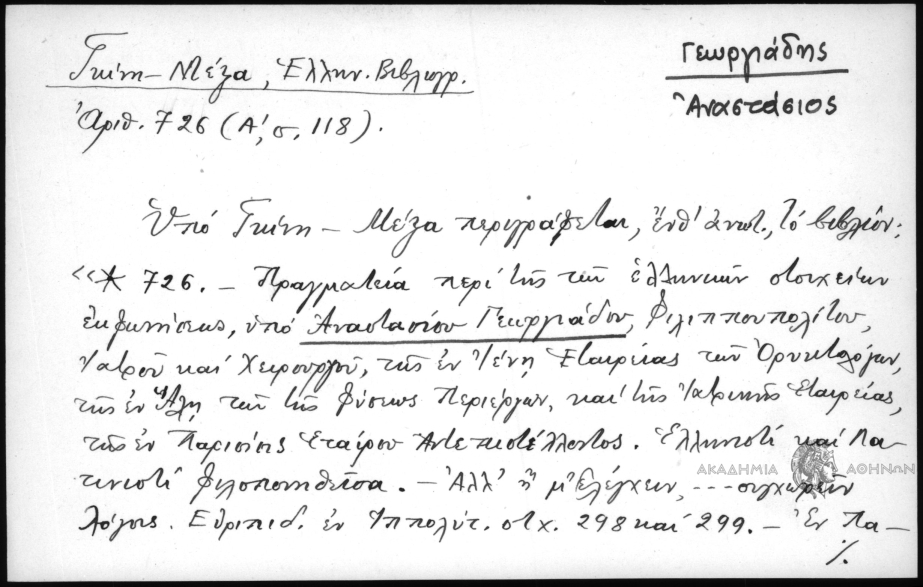 Γκίνη – Μέξα, Ἑλλην. Βιβλιογρ.
Γεωργιάδης
Ἀναστάσιος
Ἀριθ. 726 (Α', σ. 118).
Ὑπό Γκίνη – Μέξα περιγράφεται, ἔνθ' ἀνωτ., τό βιβλίον:
«* 726. – Πραγματεία περί τῆς τῶν ἑλληνικῶν στοιχείων
ἐκφωνήσεως, ὑπό Ἀναστασίου Γεωργιάδου, Φιλιππουπολίτου,
Ἰατροῦ καί Χειρουργοῦ, τῆς ἐν Ἰένῃ Ἑταιρείας τῶν Ὀρυκτολόγων,
τῆς ἐν Ἅλῃ τῶν τῆς φύσεως Περιέργων, καί τῆς Ἰατρικῆς Ἑταιρείας,
τῆς ἐν Παρισίοις Ἑταίρου Ἀντεπιστέλλοντος. Ἑλληνιστί καί Λα-
τινιστί φιλοπονηθεῖσα. – Ἀλλ' ἤ μ' ἐλέγχειν, --- συγχωρεῖν
λόγοις. Εὐριπίδ. ἐν Ἱππολύτ. στχ. 298 καί 299. – Ἐν Πα-
./.
ΑΚΑΔΗΜΙΑ ΑΘΗΝΩΝ